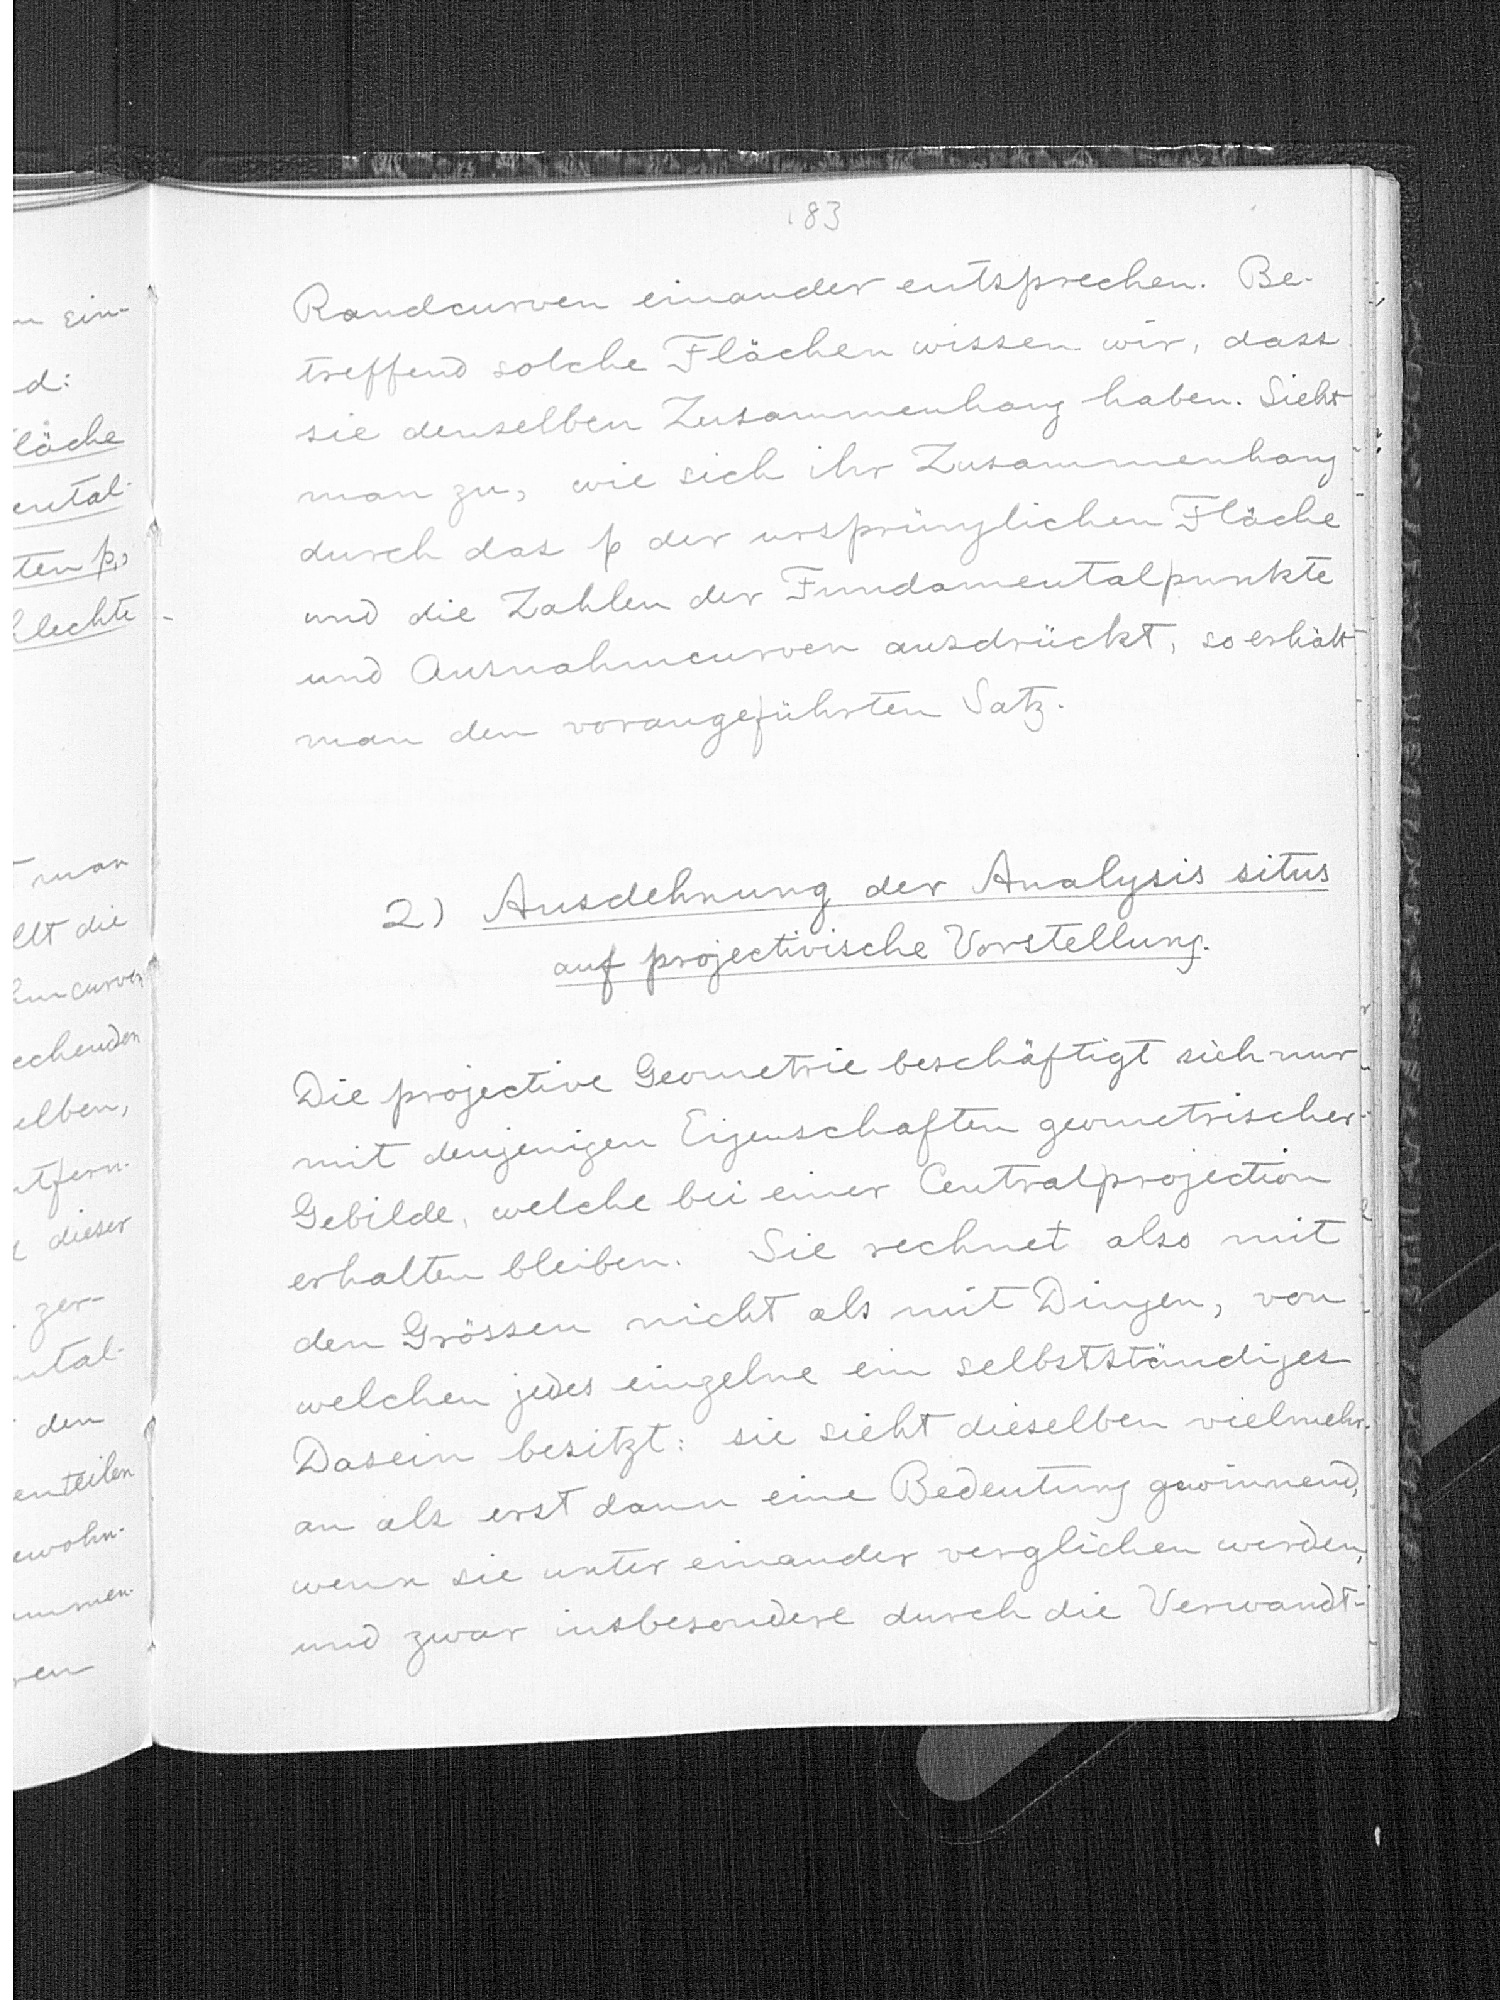 n ein-
d:
läche
ental-
ten p,
hlechte
man
llt die
hmcurven
echenden
elben,
ntfern-
dieser
zer-
ntal-
den
enteilen
ewohn-
ammen-
ren
183
Randcurven einander entsprechen. Be-
treffend solche Flächen wissen wir, dass
sie denselben Zusammenhang haben. Sieht
man zu, wie sich ihr Zusammenhang
durch das p der ursprünglichen Fläche
und die Zahlen der Fundamentalpunkte
und Ausnahmcurven ausdrückt, so erhält
man den vorangeführten Satz.
2) Ausdehnung der Analysis situs
auf projectivische Vorstellung.
Die projective Geometrie beschäftigt sich nur
mit denjenigen Eigenschaften geometrischer
Gebilde, welche bei einer Centralprojection
erhalten bleiben. Sie rechnet also mit
den Grössen nicht als mit Dingen, von
welchen jedes einzelne ein selbstständiges
Dasein besitzt: sie sieht dieselben vielmehr
an als erst dann eine Bedeutung gewinnend,
wenn sie unter einander verglichen werden,
und zwar insbesondere durch die Verwandt-